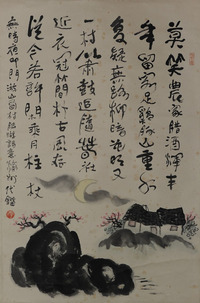 莫笑農家臘酒渾豐
年留客足雞豚山重水
复疑無路柳暗花明又
一村簫鼓追隨春社
近衣冠簡朴古風存
從今若許閒乘月拄杖
無時夜叩門游山西村陸游詩意